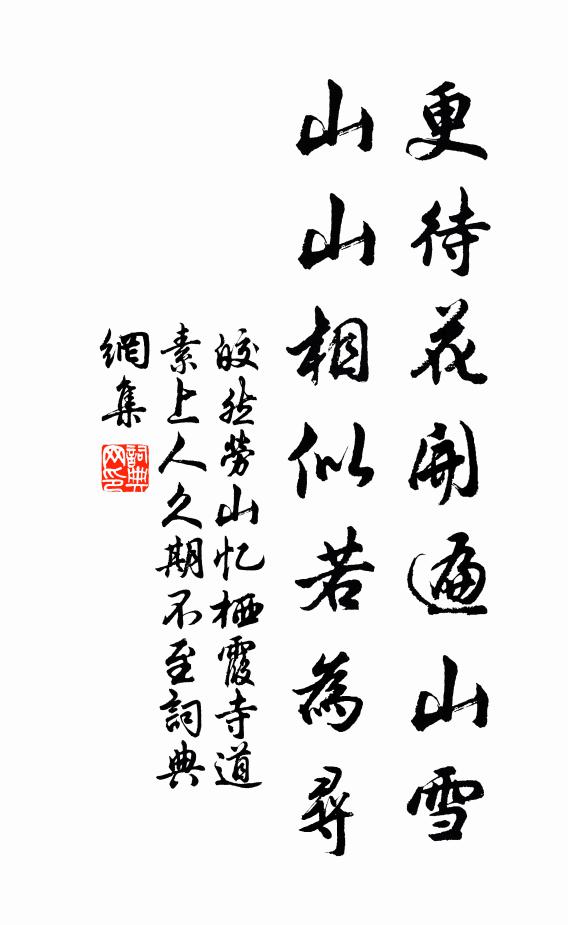 更待花開遍山雪
山山相似若為尋
皎然勞山忆栖霞寺道
素上人久期不至詞典
網集
詞典網印